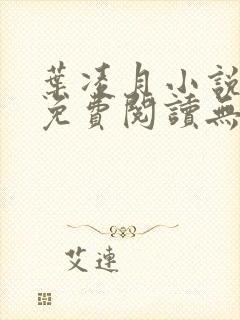 葉凌月小說
免費閱讀無
艾連